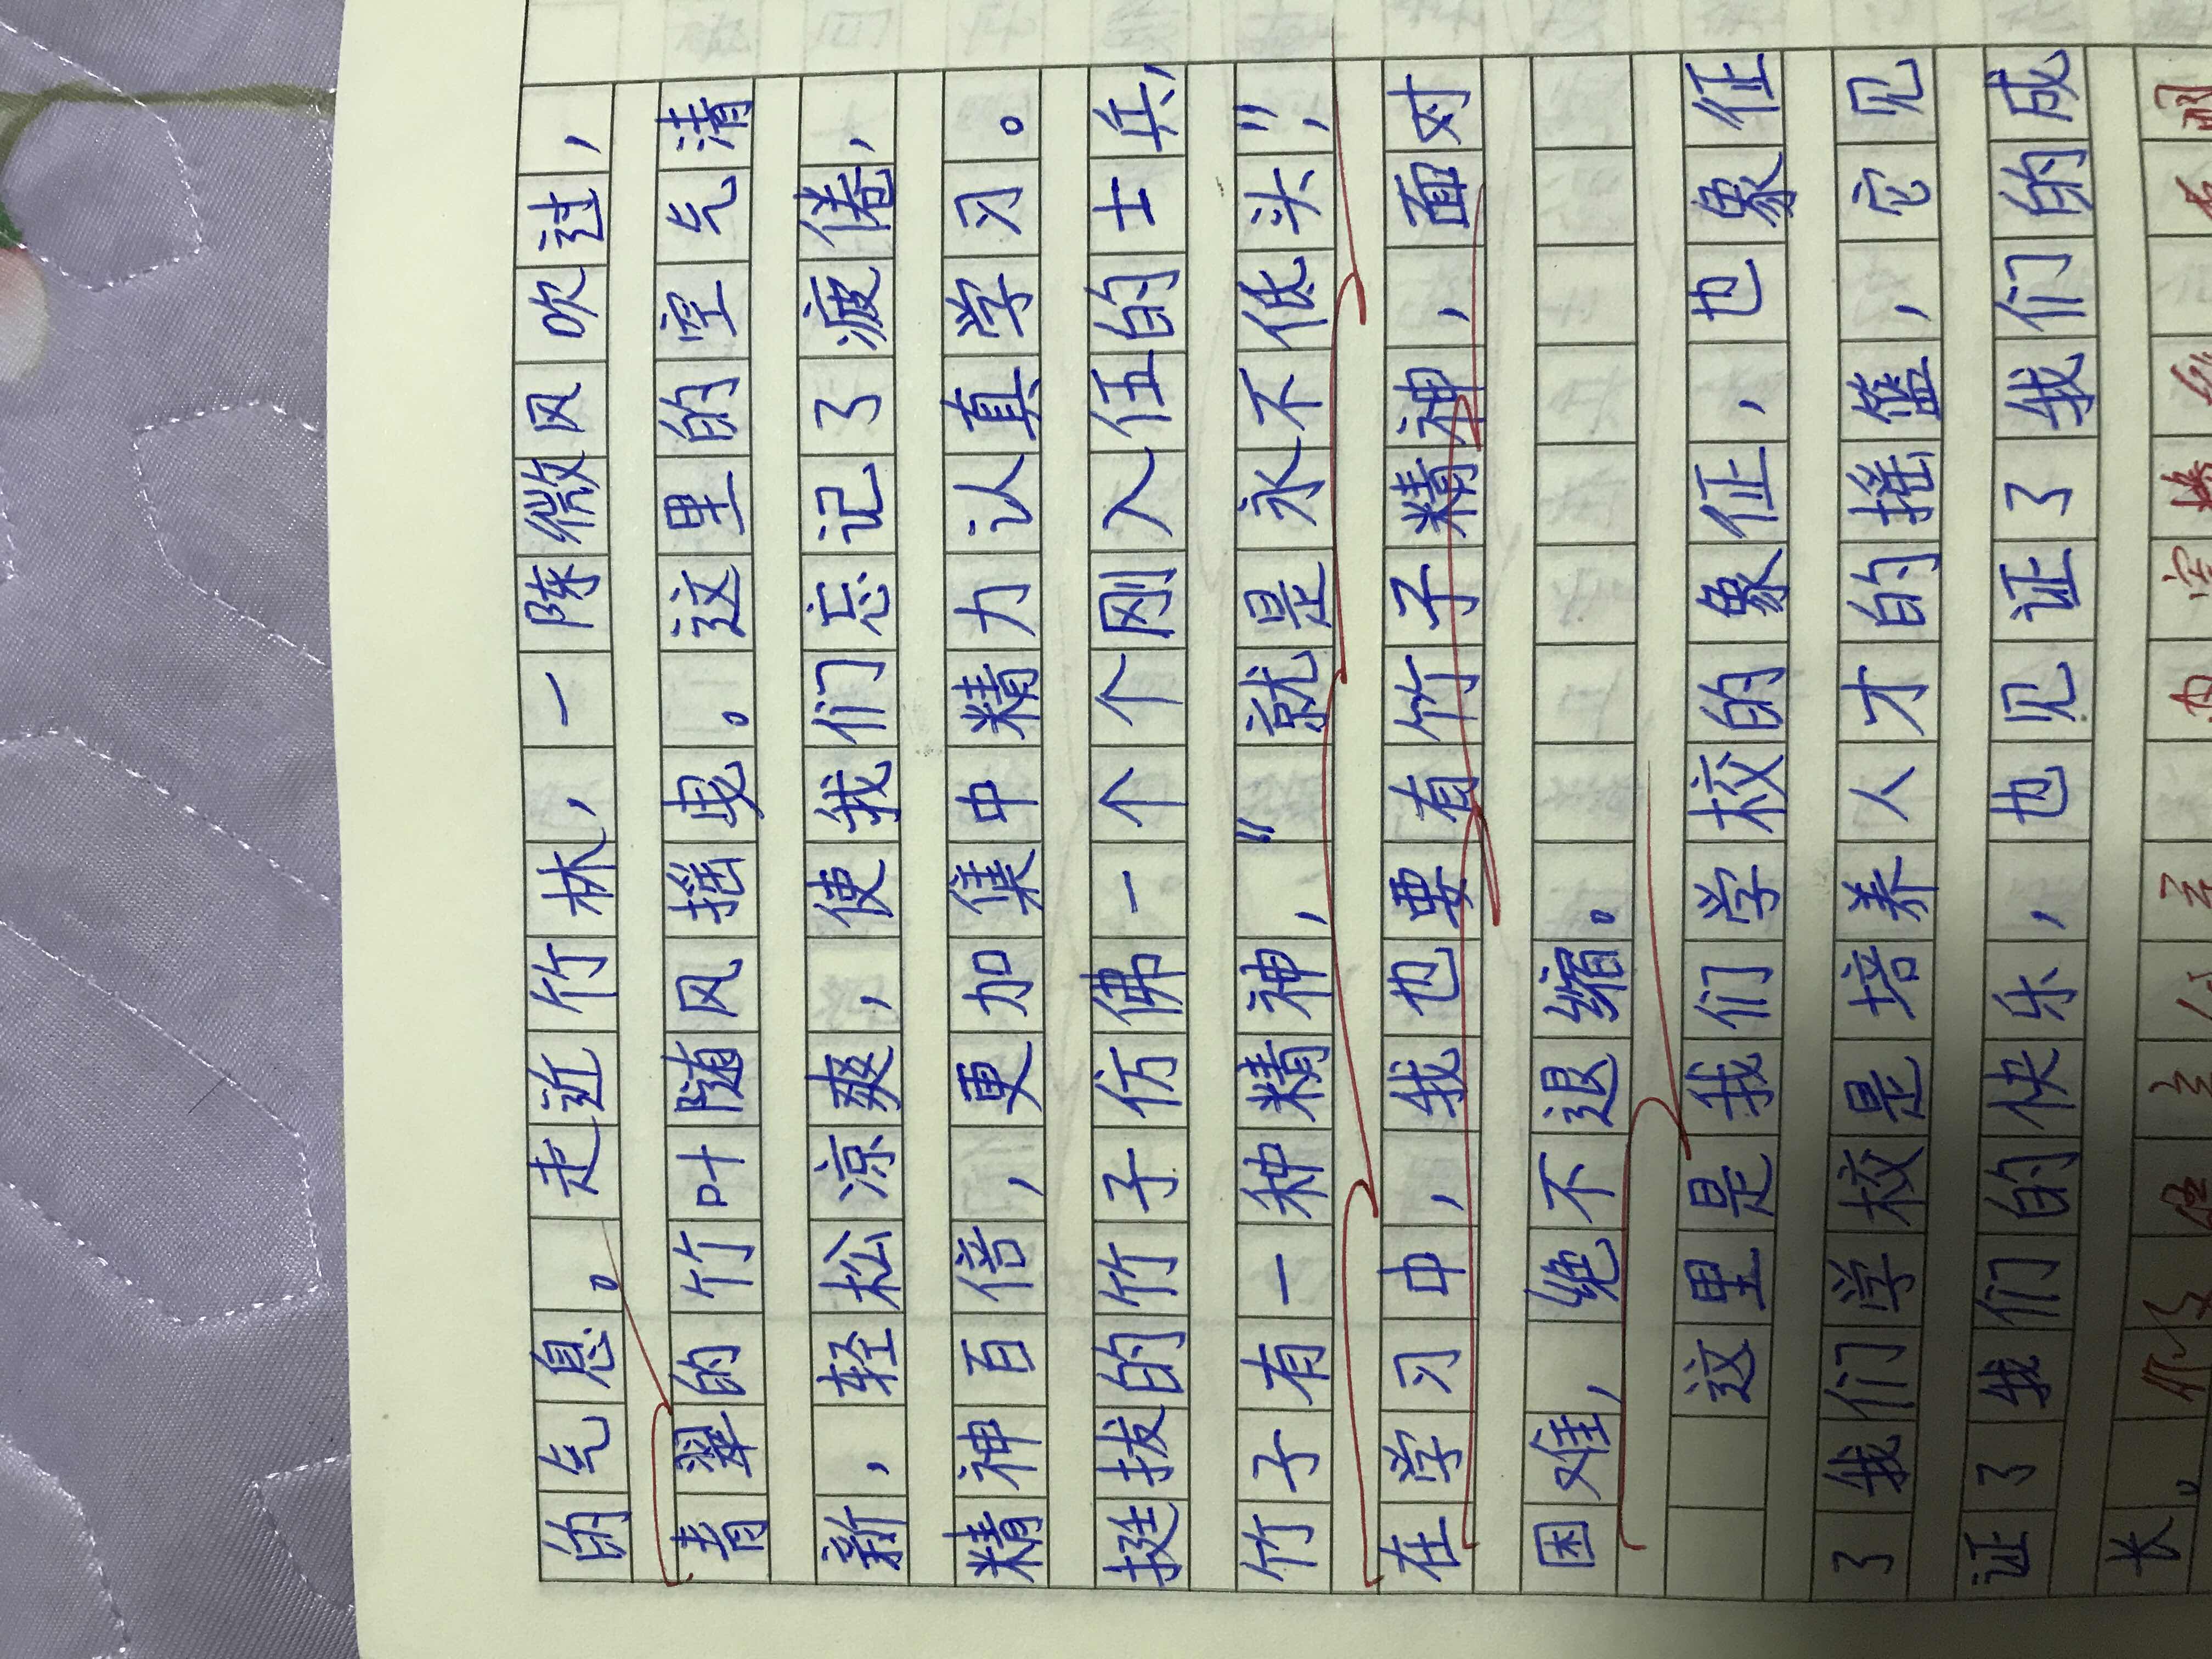 的气息。走近竹林，一阵微风吹过，
青翠的竹叶随风摇曳。这里的空气清
新，轻松凉爽，使我们忘记了疲倦，
精神百倍，更加集中精力认真学习。
挺拔的竹子仿佛一个个刚入伍的士兵，
竹子有一种精神，“就是永不低头”，
在学习中，我也要有竹子精神，面对
困难，绝不退缩。
这里是我们学校的象征，也象征
了我们学校是培养人才的摇篮，它见
证了我们的快乐，也见证了我们的成
长。